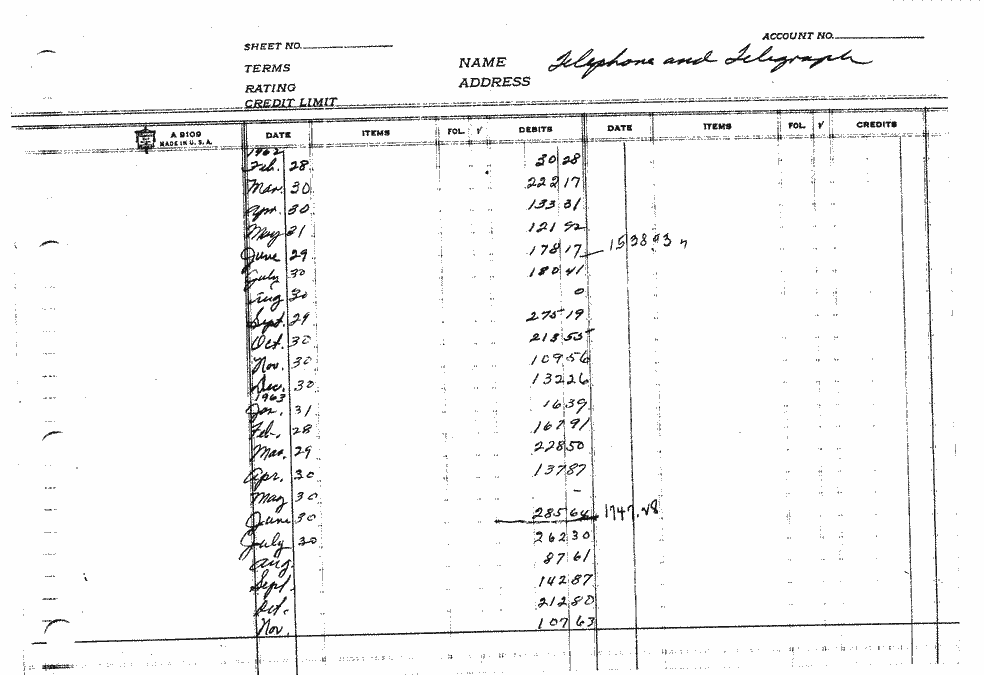 SHEET NO. ACCOUNT NO.
TERMS NAME Telephone and Telegraph
RATING ADDRESS
CREDIT LIMIT
A 9109 DATE ITEMS FOL. √ DEBITS DATE ITEMS FOL. √ CREDITS
MADE IN U.S.A.
1962
Feb. 28 30 28
Mar. 30 222 17
Apr. 30 133 31
May 31 121 92
June 29 178 17 1538 93
July 30 180 41
Aug 30 0
Sept. 29 275 19
Oct. 30 213 55
Nov. 30 109 56
Dec. 30 132 26
1963
Jan. 31 16 39
Feb. 28 167 91
Mar. 29 228 50
Apr. 30 137 87
May 30 -
June 30 285 64 1747.28
July 30 262 30
Aug 87 61
Sept. 142 87
Oct. 212 80
Nov. 107 63